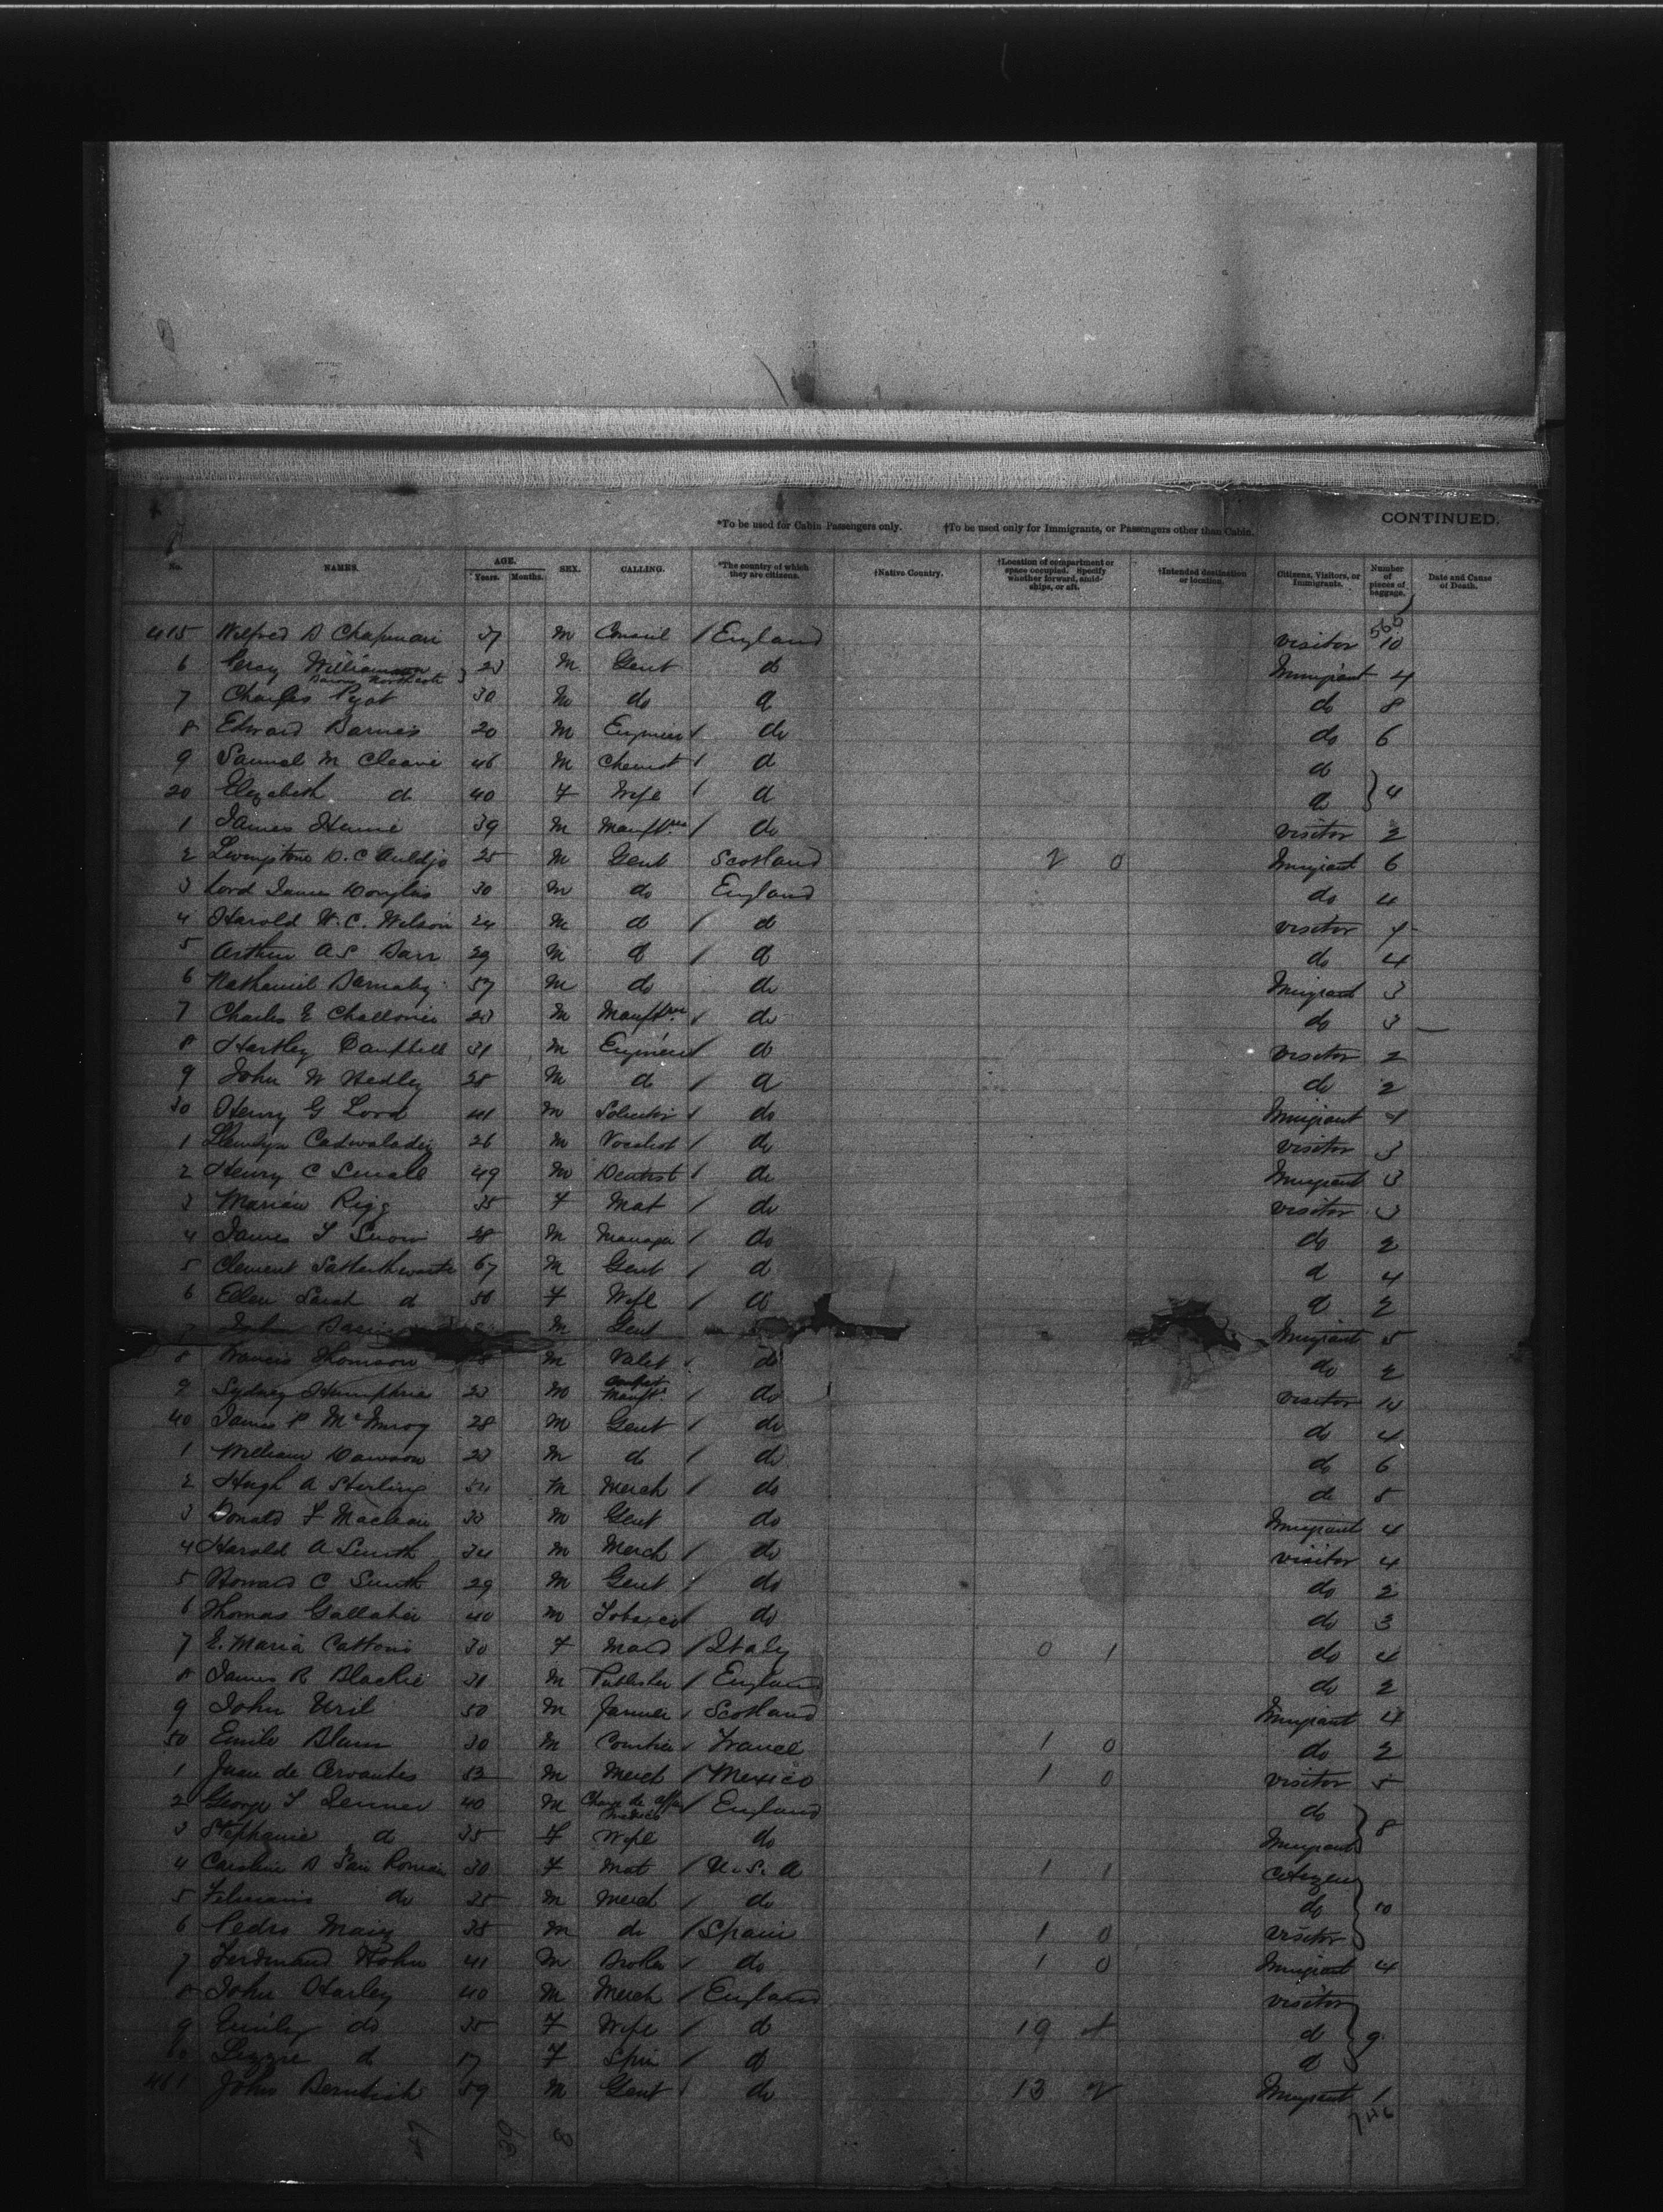 *To be used for Cabin Passengers only. †To be used only for Immigrants, or Passengers other than Cabin. CONTINUED.
No. NAMES. AGE. Years. Months. SEX. CALLING. *The country of which they are citizens. †Native Country. †Location of compartment or space occupied. Specify whether forward, amidships, or aft. †Intended destination or location. Citizens, Visitors, or Immigrants. Number of pieces of baggage. Date and Cause of Death.
565
415 Wilfred B Chapman 37 M Consul / England visitor 10
6 Percy Williamson 23 M Gent do Immigrant 4
Northcote
7 Charles Pyot 30 M do d do 8
8 Edward Barnes 20 M Engineer / do do 6
9 Samuel M Cleave 46 M Chemist / d d
20 Elizabeth d 40 F Wife / d d } 4
1 James Hume 39 M Manftrer / do visitor 2
2 Livingstone D. C Auldjo 25 M Gent Scotland 2 0 Imigrant 6
3 Lord James Douglas 30 M do England do 4
4 Harold W. C. Wilson 24 M d / d visitor 4
5 Arthur A S Barr 29 M d / d do 4
6 Nathaniel Barnaby 57 M do do Imigrant 3
7 Charles E Challoner 23 M Manftrer / do do 3
8 Hartley Campbell 31 M Engineer / do visitor 2
9 John W Hedley 28 M d / d do 2
30 Henry G Lord 41 M Solicitor / do Immigrant 4
1 Llewelyn Cadwalader 26 M Vocalist / do visitor 3
2 Henry C Small 49 M Dentist / do Imigrant 3
3 Marian Rigg 35 F Mat / do visitor 3
4 James T Snow 28 M Manager / do do 2
5 Clement Satterthwaite 67 M Gent / d d 4
6 Ellen Sarah d 50 F Wife / d d 2
7 John M Gent Imigrant 5
8 Francis Thomson M Valet do do 2
9 Sydney Humphries 23 M Manftr / do visitor 14
40 James P 28 M Gent / do do 4
1 William Dawson 23 M do / do do 6
2 Hugh A Sterling 54 M Merch / do do 5
3 Donald F Maclean 33 M Gent do Imigrant 4
4 Harold A Smith 34 M Merch / do visitor 4
5 Howard C Smith 29 M Gent / do do 2
6 Thomas Gallaher 40 M Tobacco / do do 3
7 E. Maria Cattoni 30 F Maid / Italy 0 1 do 4
8 James R Blackie 31 M Publisher / England do 2
9 John Uril 50 M Farmer / Scotland Imigrant 4
50 Emile Blum 30 M / France 1 0 do 2
1 Juan de Cervantes 53 M Merch / Mexico 1 0 visitor 5
2 George T Jenner 40 M Charge de Affair / England do
Mexico
3 Stephanie d 35 F Wife do Imigrant } 8
4 Caroline D San Roman 30 F Mat / U. S. A 1 1 Citizen
5 do 35 M Merch / do do } 10
6 Pedro 35 M do / Spain 1 0 visitor
7 Ferdinand Hohn 41 M Broker / do 1 0 Imigrant 4
8 John Harley 40 M Merch / England visitor
9 Emily do 35 F Wife / d 19 d } 9
60 Lizzie d 17 F Spin / d d
461 John 59 M Gent / do 13 2 Imigrant 1
746
39 8